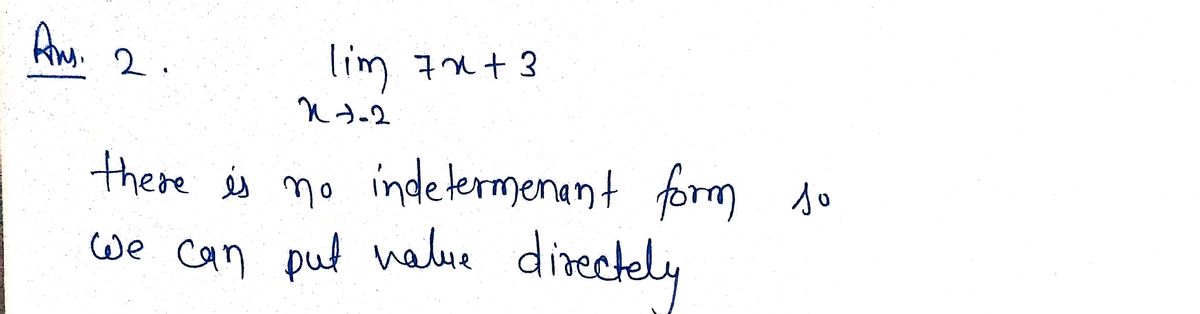 Ans. 2. lim 7x + 3
x→-2
there is no indetermenant form so
we can put value directely